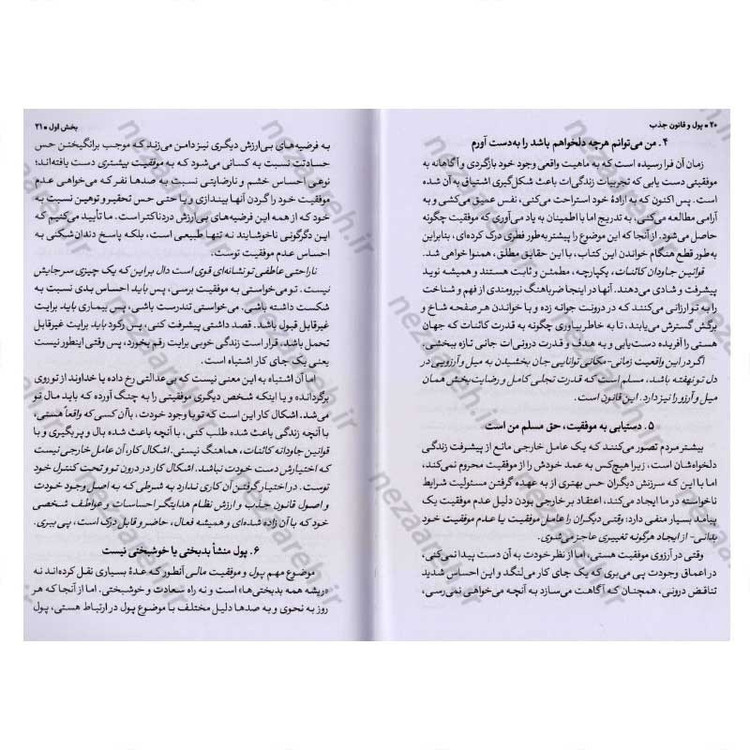 ۲۰ • پول و قانون جذب
۴. من می‌توانم هرچه دلخواهم باشد را به‌دست آورم
زمان آن فرا رسیده است که به ماهیت واقعی وجود خود بازگردی و آگاهانه به
موفقیتی دست یابی که تجربیات زندگی‌ات باعث شکل‌گیری اشتیاق به آن شده
است. پس اکنون که به اراده خود استراحت می‌کنی، نفس عمیق می‌کشی و به
آرامی مطالعه می‌کنی، به تدریج اما با اطمینان به یاد می‌آوری که موفقیت چگونه
حاصل می‌شود. از آنجا که این موضوع را پیشتر به‌طور فطری درک کرده‌ای، بنابراین
به‌طور قطع هنگام خواندن این کتاب، با این حقایق مطلق، همنوا خواهی شد.
قوانین جاودان کائنات، یکپارچه، مطمئن و ثابت هستند و همیشه نوید
پیشرفت و شادی می‌دهند. آنها در اینجا ضرباهنگ نیرومندی از فهم و شناخت
را به تو ارزانی می‌کنند که در درونت جوانه زده و با خواندن هر صفحه شاخ و
برگش گسترش می‌یابند، تا به خاطر بیاوری چگونه به قدرت کائنات که جهان
هستی را آفریده دست یابی و به هدف و قدرت درونی‌ات جانی تازه ببخشی.
اگر در این واقعیت زمانی-مکانی توانایی جان بخشیدن به میل و آرزویی در
دل تو نهفته باشد، مسلم است که قدرت تجلی کامل و رضایت‌بخش همان
میل و آرزو را نیز دارد. این قانون است.
۵. دستیابی به موفقیت، حق مسلم من است
بیشتر مردم تصور می‌کنند که یک عامل خارجی مانع از پیشرفت زندگی
دلخواه‌شان است، زیرا هیچ‌کس به عمد خودش را از موفقیت محروم نمی‌کند،
اما با این که سرزنش دیگران حس بهتری از به عهده گرفتن مسئولیت شرایط
ناخواسته در ما ایجاد می‌کند، اعتقاد بر خارجی بودن دلیل عدم موفقیت یک
پیامد بسیار منفی دارد: وقتی دیگران را عامل موفقیت یا عدم موفقیت خود
بدانی- از ایجاد هرگونه تغییری عاجز می‌شوی.
وقتی در آرزوی موفقیت هستی، اما از نظر خودت به آن دست پیدا نمی‌کنی،
در اعماق وجودت پی می‌بری که یک جای کار می‌لنگد و این احساس شدید
تناقض درونی، همچنان که آگاهت می‌سازد به آنچه می‌خواهی نمی‌رسی،
بخش اول • ۲۱
به فرضیه‌های بی‌ارزش دیگری نیز دامن می‌زند که موجب برانگیختن حس
حسادتت نسبت به کسانی می‌شود که به موفقیت بیشتری دست یافته‌اند؛
نوعی احساس خشم و نارضایتی نسبت به صدها نفر که می‌خواهی عدم
موفقیت خود را گردن آنها بیندازی و یا حتی حس تحقیر و توهین نسبت به
خود که از همه این فرضیه‌های بی‌ارزش دردناکتر است. ما تأیید می‌کنیم که
این دگرگونی ناخوشایند نه تنها طبیعی است، بلکه پاسخ دندان‌شکنی به
احساس عدم موفقیت توست.
ناراحتی عاطفی تو نشانه‌ای قوی است دال بر این که یک چیزی سر جایش
نیست. تو می‌خواستی به موفقیت برسی، پس باید احساس بدی نسبت به
شکست داشته باشی. می‌خواستی تندرست باشی، پس بیماری باید برایت
غیرقابل قبول باشد. قصد داشتی پیشرفت کنی، پس رکود باید برایت غیرقابل
تحمل باشد. قرار است زندگی خوبی برایت رقم بخورد، پس وقتی اینطور نیست
یعنی یک جای کار اشتباه است.
اما آن اشتباه به این معنی نیست که بی‌عدالتی رخ داده یا خداوند از تو روی
برگردانده و یا اینکه شخص دیگری موفقیتی را به چنگ آورده که باید مال تو
می‌شد. اشکال کار این است که تو با وجود خودت، با آن کسی که واقعاً هستی،
با آنچه زندگی باعث شده طلب کنی، با آنچه زندگی باعث شده بال و پر بگیری و با
قوانین جاودانه کائنات، هماهنگ نیستی. اشکال کار، آن عامل خارجی نیست
که اختیارش دست خودت نباشد. اشکال کار در درون تو و تحت کنترل خود
توست. در اختیار گرفتن آن کاری ندارد به شرطی که به اصل وجود خودت
و اصول قانون جذب و ارزش نظام هدایتگر احساسات و عواطف شخصی
خود که با آن زاده شده‌ای و همیشه فعال، حاضر و قابل درک است، پی ببری.
۶. پول منشأ بدبختی یا خوشبختی نیست
موضوع مهم پول و موفقیت مالی آنطور که عدهٔ بسیاری نقل کرده‌اند نه
«ریشه همه بدبختی‌ها» است و نه راه سعادت و خوشبختی. اما از آنجا که هر
روز به نحوی و به صدها دلیل مختلف با موضوع پول در ارتباط هستی، پول
nezaareh.ir